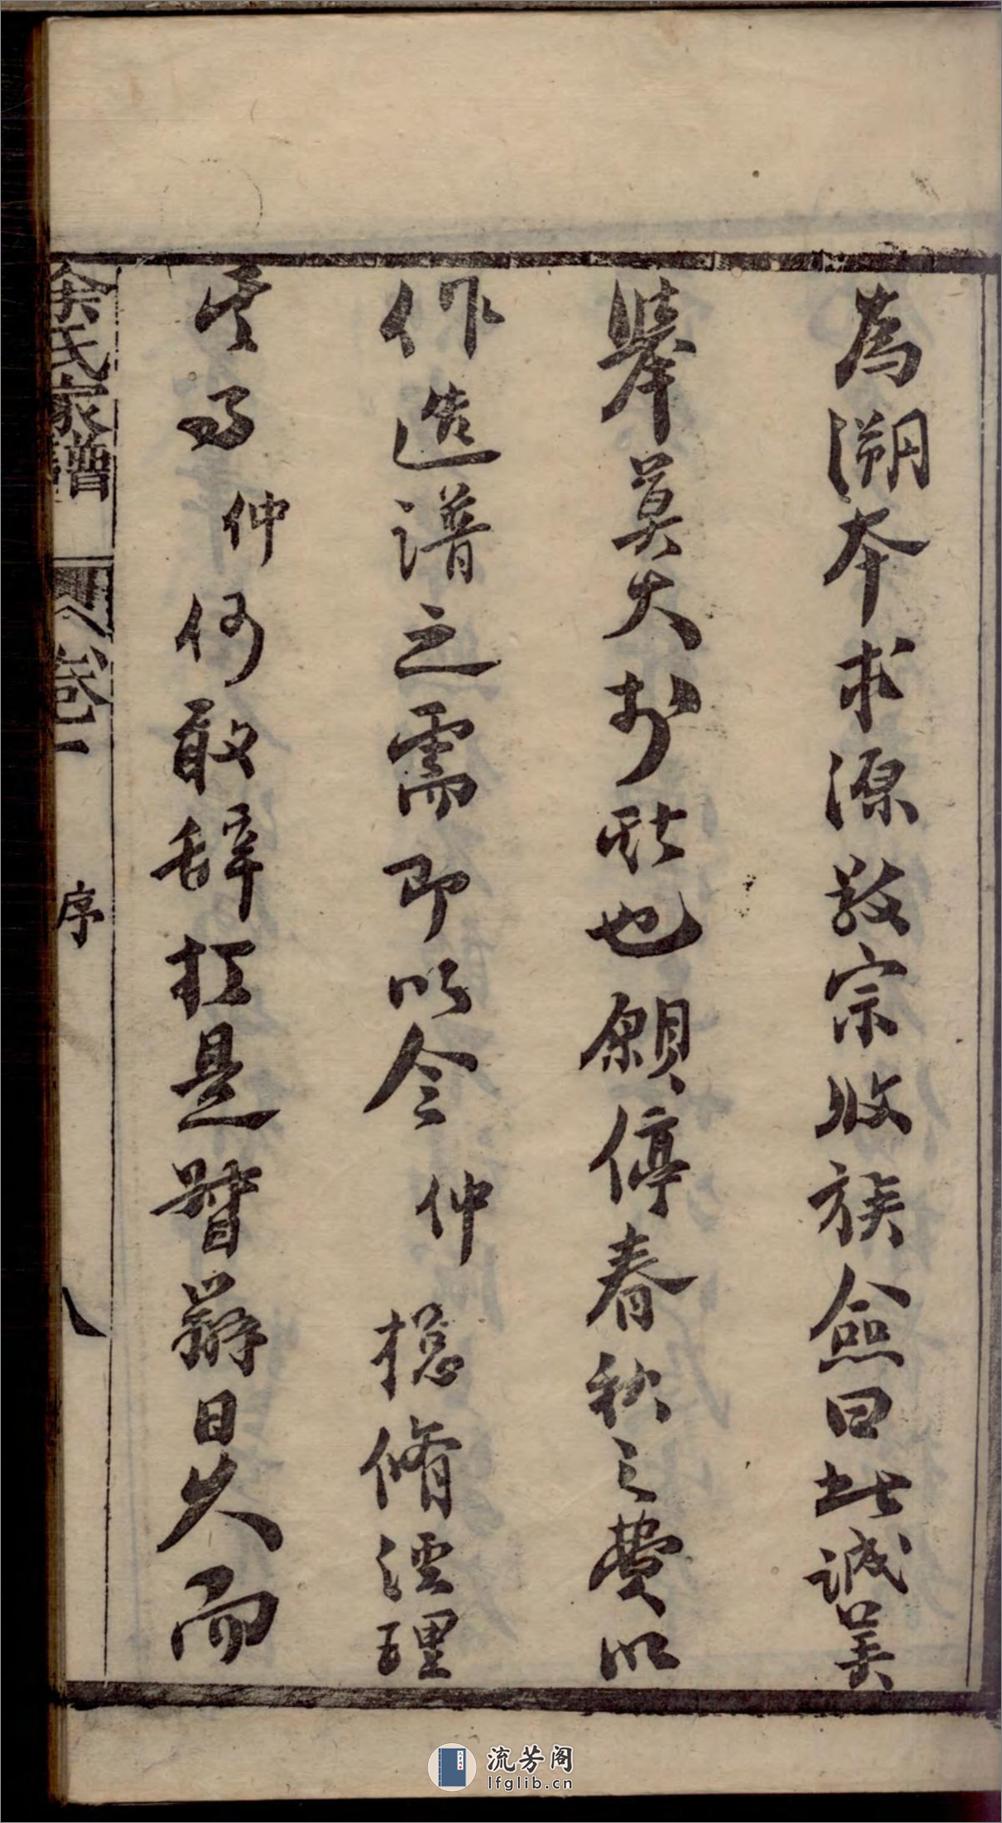 為溯本求源敬宗收族僉曰此誠美
舉莫大於此也願停春秋之費以
作造譜之需即以令仲總脩経理
其事仲何敢辭扵是督辦日久而
余氏家譜
卷一
序
八
流芳阁
lfglib.cn